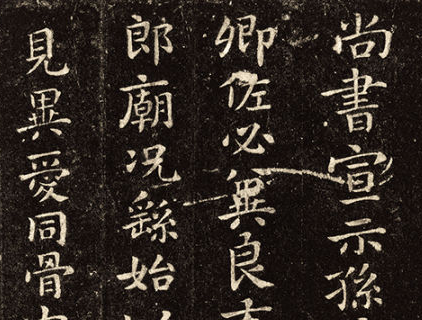 尚書宣示孫
卿佐必兾良
郎廟况繇始
見異愛同骨